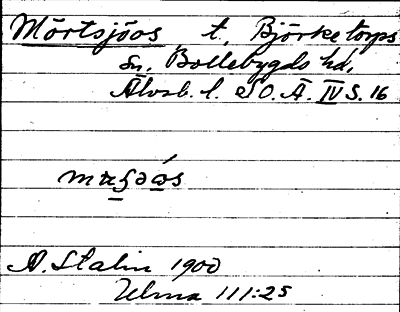 Mörtsjöos t. Björketorps
sn, Bollebygds hd,
Älvsb. l. SOÄ IV S. 16
A. Stalin 1900
Ulma 111:25